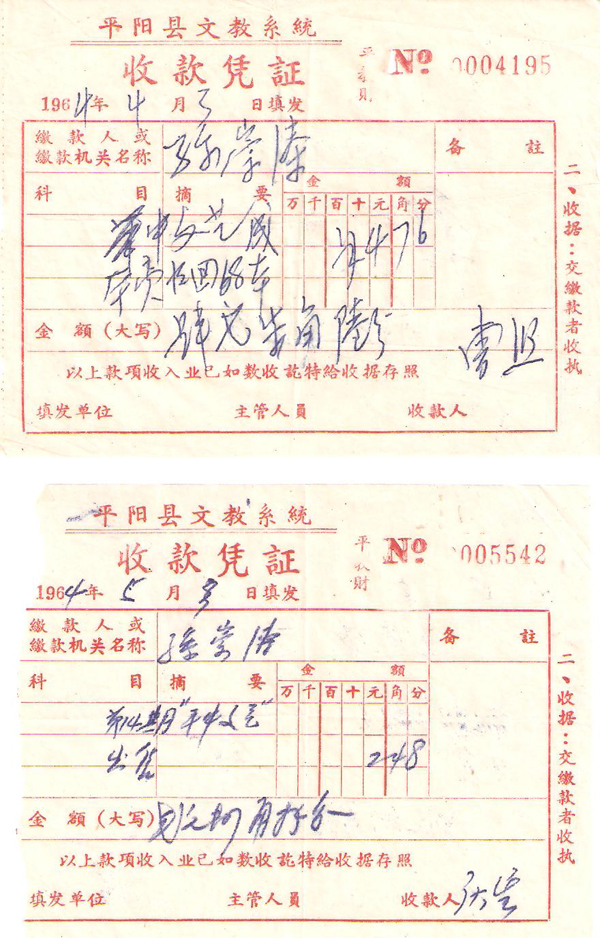 平阳县文教系統
收款凭証
平 財 №0004195
1964年4月3日填发
繳款人或
繳款机关名称
备註
科目 摘要 金額
万千百十元角分
文艺
收回68本
¥476
金額(大写) 肆元柒角陆分
以上款項收入业已如数收訖特給收据存照
填发单位 主管人員 收款人
二、收据:交繳款者收执
平阳县文教系統
收款凭証
平 財 №005542
1964年5月3日填发
繳款人或
繳款机关名称 孫崇涛
备註
科目 摘要 金額
万千百十元角分
第14期"平中文艺"
出售 248
金額(大写)
以上款項收入业已如数收訖特給收据存照
填发单位 主管人員 收款人
二、收据:交繳款者收执